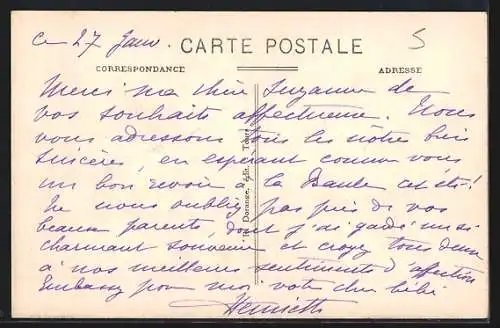 Ce 27 Janv.
CARTE POSTALE
5
CORRESPONDANCE
ADRESSE
Merci ma chère Suzanne de
vos souhaits affectueux. Nous
vous adressons tous les nôtres bien
sincères, en espérant comme vous
un bon revoir à la Baule cet été!
Ne nous oubliez pas près de vos
beaux parents, dont j'ai gardé un si
charmant souvenir et croyez tous deux
à nos meilleurs sentiments d'affection
Embrassez pour moi votre cher bébé
Henriette
Dorange, édit. Tours